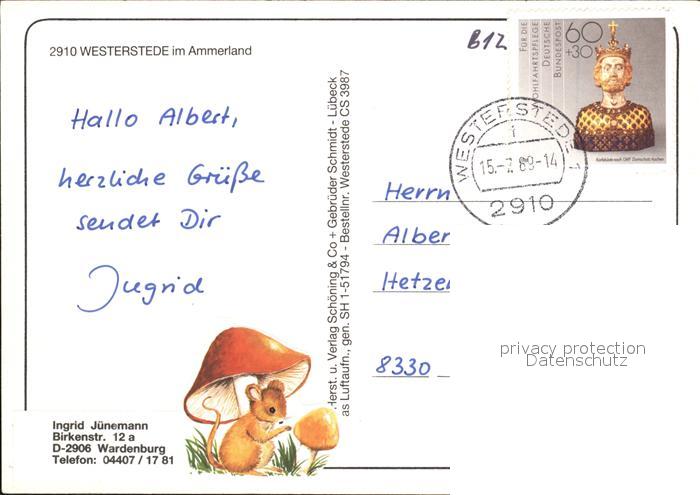 2910 WESTERSTEDE im Ammerland
Hallo Albert,
herzliche Grüße
sendet Dir
Ingrid
Ingrid Jünemann
Birkenstr. 12 a
D-2906 Wardenburg
Telefon: 04407 / 17 81
Herst. u. Verlag Schöning & Co + Gebrüder Schmidt - Lübeck
as Luftaufn., gen. SH 1-51794 - Bestellnr. Westerstede CS 3987
B12
FÜR DIE
WOHLFAHRTSPFLEGE
DEUTSCHE
BUNDESPOST
60
+30
Karlsbüste nach 1349 Domschatz Aachen
WESTERSTEDE 1
15.-7.89-14
2910
Herrn
Alber
Hetze
8330
privacy protection
Datenschutz